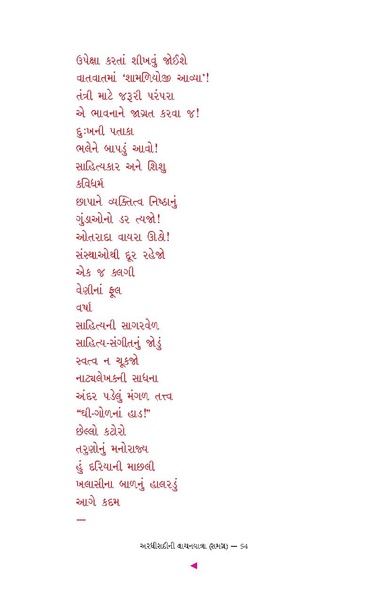 ઉપેક્ષા કરતાં શીખવું જોઈશે
વાતવાતમાં ‘શામળિયોજી આવ્યા’!
તંત્રી માટે જરૂરી પરંપરા
એ ભાવનાને જાગ્રત કરવા જ!
દુઃખની પતાકા
ભલેને બાપડું આવો!
સાહિત્યકાર અને શિશુ
કવિધર્મ
છાપાને વ્યક્તિત્વ નિષ્ઠાનું
ગુંડાઓનો ડર ત્યજો!
ઓતરાદા વાયરા ઊઠો!
સંસ્થાઓથી દૂર રહેજો
એક જ કલગી
વેણીનાં ફૂલ
વર્ષા
સાહિત્યની સાગરવેળ
સાહિત્ય-સંગીતનું જોડું
સ્વત્વ ન ચૂકજો
નાટ્યલેખકની સાધના
અંદર પડેલું મંગળ તત્ત્વ
“ઘી-ગોળનાં હાડ!”
છેલ્લો કટોરો
તરુણોનું મનોરાજ્ય
હું દરિયાની માછલી
ખલાસીના બાળનું હાલરડું
આગે કદમ
—
અરધીસદીની વાચનયાત્રા (સમગ્ર) — 54